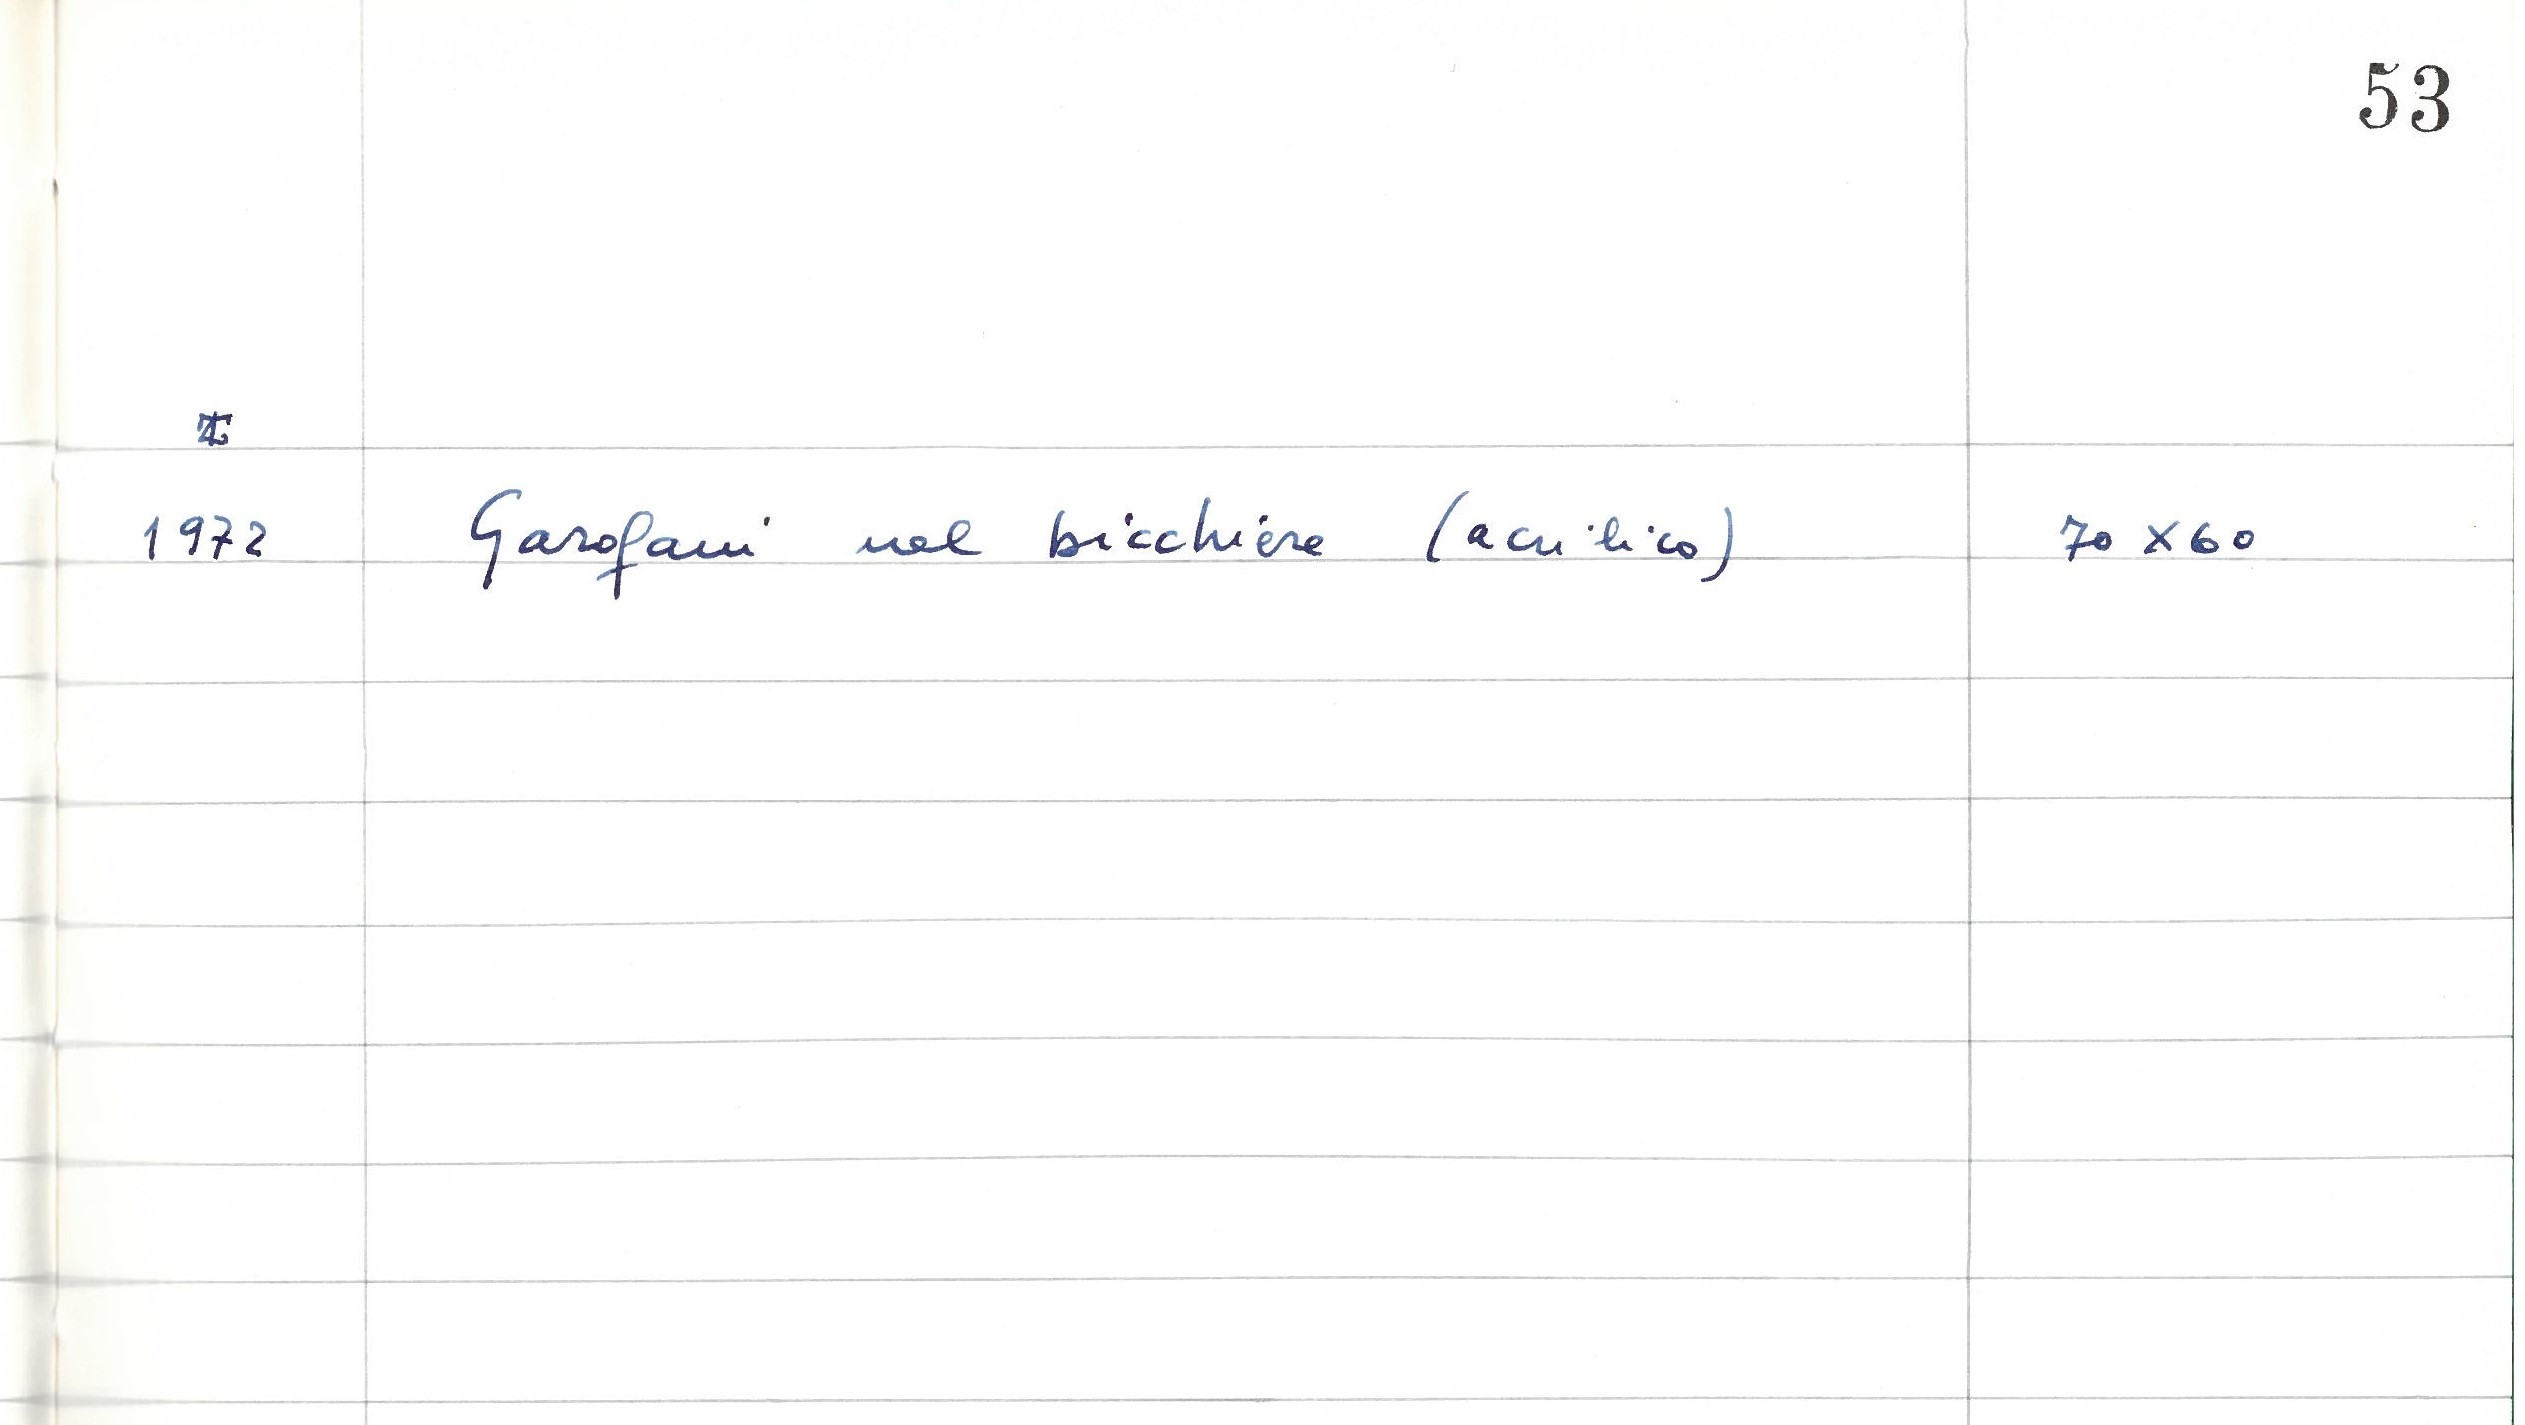 53
1972 Garofani nel bicchiere (acrilico) 70 x 60